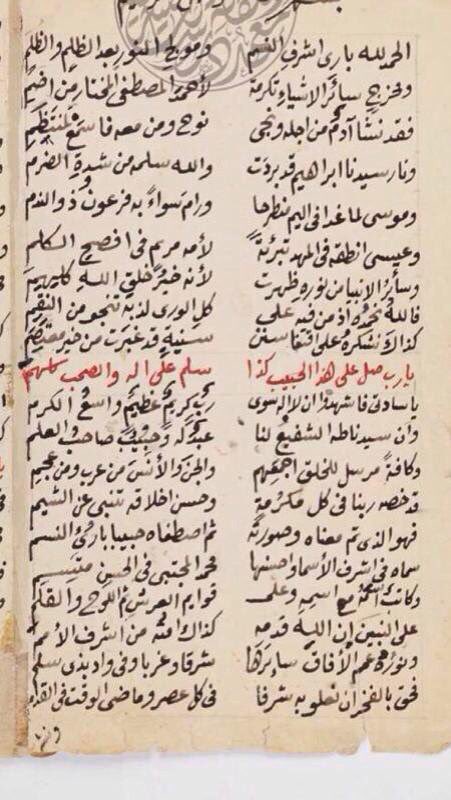 الحمد لله باري اشرف النسم وموبج النور بعد الظلم والظلم
ومخرج سائر الاشياء تكرمة لأحمد المصطفى المختار من اضم
فقد نشا آدم من اجله ونجى نوح ومن معه فاسمع لمنتظم
ونار سيدنا ابراهيم قد بردت والله سلمه من شدة الضرم
وموسى لما غدا في اليم منطرحا ورام سواءً به فرعون ذو الندم
وعيسى انطقه في المهد تبرئة لأمه مريم في افصح الكلم
وسائر الانبيا من نوره ظهرت لأنه خير خلق الله كلهم
فالله نحمده اذ من فيه على كل الورى لذ به تنجو من النقم
كذاك نشكره على اقتفا سنن سنية قد غبرت من خير معتصم
يا رب صل على هذا الحبيب كذا سلم على اله والصحب كلهم
يا سادتي فاشهدوا ان لا اله سوى رب كريم عظيم واسع الكرم
وان سيدنا طه الشفيع لنا عبد له وحبيب صاحب العلم
وكافة مرسل للخلق اجمعهم والجن والأنس من عرب ومن عجم
قد خصه ربنا في كل مكرمة وحسن اخلاقه تنبي عن الشيم
فهو الذي تم معناه وصورته ثم اصطفاه حبيبا بارئ النسم
سماه في اشرف الأسما واحسنها محمد المجتبى في الحسن متسم
وكاتب اسمه مع اسمه وعلى قوايم العرش ثم اللوح والقلم
على النبيين إن الله قدمه كذاك امته من اشرف الأمم
ونوره عم الأفاق سائرها شرقا وغربا وفي واد بذي سلم
فحق بالفخر ان نعلو به شرفا في كل عصر وما ضى الوقت في القدم